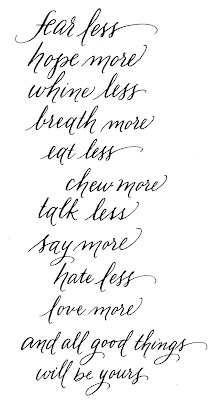 fear less
hope more
whine less
breath more
eat less
chew more
talk less
say more
hate less
love more
and all good things
will be yours